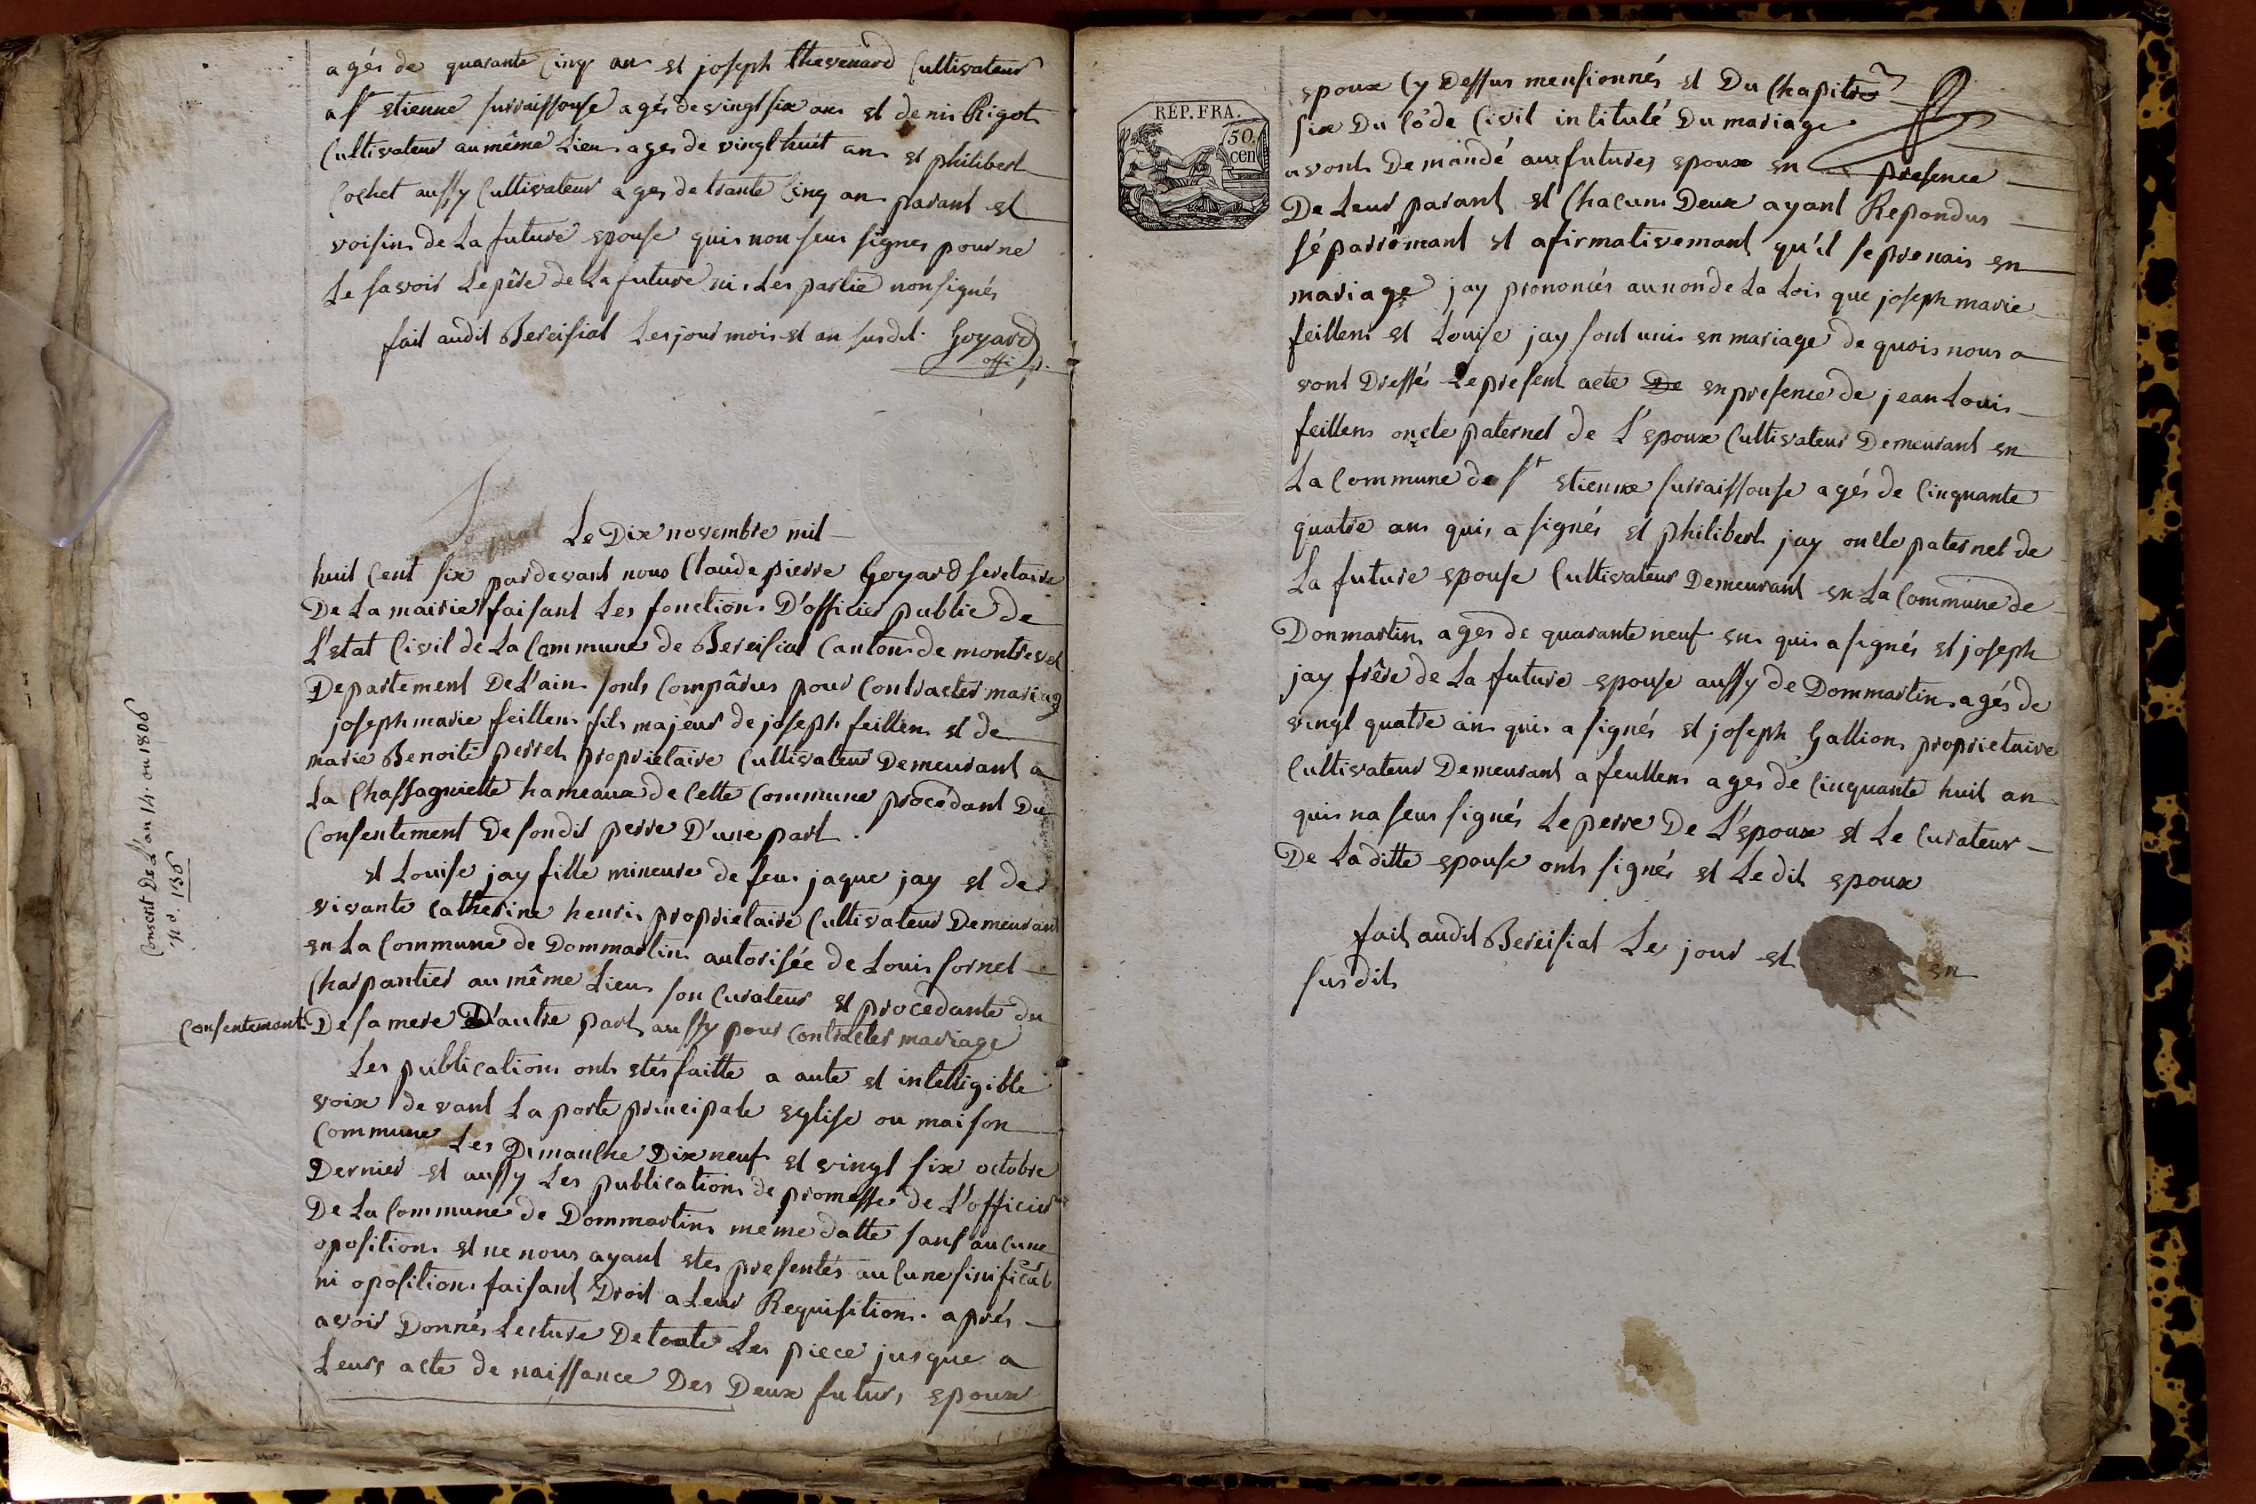 agés de quarante cinq ans et joseph thevenard Cultivateur
a St etienne surraissouse agés de vingt six ans et denis Rigot
Cultivateur au même Lieu ages de vingt huit ans et philibert
Cochet aussy Cultivateur ages de trante Cinq ans parant et
voisins de La future epouse quis non seus signes pour ne
Le savoir Lepère de La future ni Les partie non signés
fait audit Bereisiat Les jour mois et an susdit. Goyard
offi p.
Le Dix novembre mil
huit Cent six pardevant nous Claude pierre Goyard secretaire
De La mairie faisant Les fonctions D'officier public de
L'etat Civil de La Commune de Bereisiat Canton de montrevel
Departement De L'ain sonts Compârus pour Contracter mariag
joseph marie feillens fils majeur de joseph feillens et de
marie Benoite perret proprietaire Cultivateur Demeurant a
La Chassagniette hameaux de Cette Commune procédant Du
Consentement De sondit perre D'une part.
et Louise jay fille mineure de feu jaque jay et de
vivante Catherine henri proprietaire Cultivateur Demeurant
en La Commune de Dommartin autorisée de Louis fornet
Charpantier au même Lieu son Curateur et procedante du
Consentemant De sa mere D'autre part aussy pour Contracter mariage
Les publications onts etés faitte a aute et intelligible
voix devant La porte principale eglise ou maison
Commune Les Dimanche Dix neuf et vingt six octobre
Dernier et aussy Les publications de promesse de L'officier
De La Commune de Dommartin meme datte sans aucune
oposition et ne nous ayant etes presentés aucune sinificat
ni oposition faisant Droit a Leur Requisition. aprés
avoir Donnés Lecture De toute Les piece jusque a
Leurs acte de naissance Des Deux futurs epoux
Consent De L'an 14. ou 1806
N°. 136
REP. FRA.
50.
cen
epoux Cy Dessus mensionnés et Du Chapitre
six Du Côde Civil intitulé Du mariage
avont Demandé aux futures epoux en presence
De Leur parant et Chacuns Deux ayant Repondus
séparrémant et afirmativemant qu'il se prenais en
mariage jay prononcés au non de La Lois que joseph marie
feillens et Louise jay sont unis en mariage de quois nous a
vont Dressés Le present acte De en presence de jean Louis
feillens oncle paternel de L'epoux Cultivateur Demeurant en
La Commune de St etienne surraissouse agés de Cinquante
quatre ans quis a signés et philibert jay oncle paternel de
La future epouse Cultivateur Demeurant en La Commune de
Donmartin ages de quarante neuf ens quis a signés et joseph
jay frêre de La future epouse aussy de Dommartin agés de
vingt quatre ans quis a signés et joseph Gallion proprietaire
Cultivateur Demeurant a feullens ages de Cinquante huit an
quis na seus signés Le perre De L'epoux et Le Curateur
De La ditte epouse onts signés et Le dit epoux
fait audit Bereisiat Les jour et en
susdit